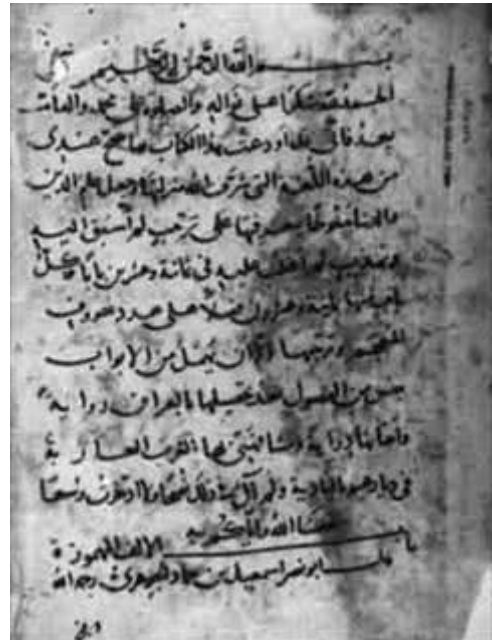 بسم الله الرحمن الرحيم
الحمد لله شكرا على نواله والصلوة على محمد واله اما
بعد فانى قد اودعت هذا الكتاب ما صح عندى
من هذه اللغة التى شرف الله منزلتها وجعل علم الدين
والدنيا منوطا بمعرفتها على ترتيب لم اسبق اليه
وتهذيب لم اغلب عليه فى ثمانية وعشرين بابا كل
باب منها ثمانية وعشرون فصلا على عدد حروف
المعجم وترتيبها الا ان يهمل من الابواب
جنس من الفصول بعد تحصيلها بالعراق رواية
واتقانها دراية ومشافهتى بها العرب العاربة
فى ديارهم بالبادية ولم آل فى ذلك نصحا ولا ادخرت وسعا
نفعنا الله واياكم به
باب الالف المهموزة
قال ابو نصر اسمعيل بن حماد الجوهرى رحمه الله